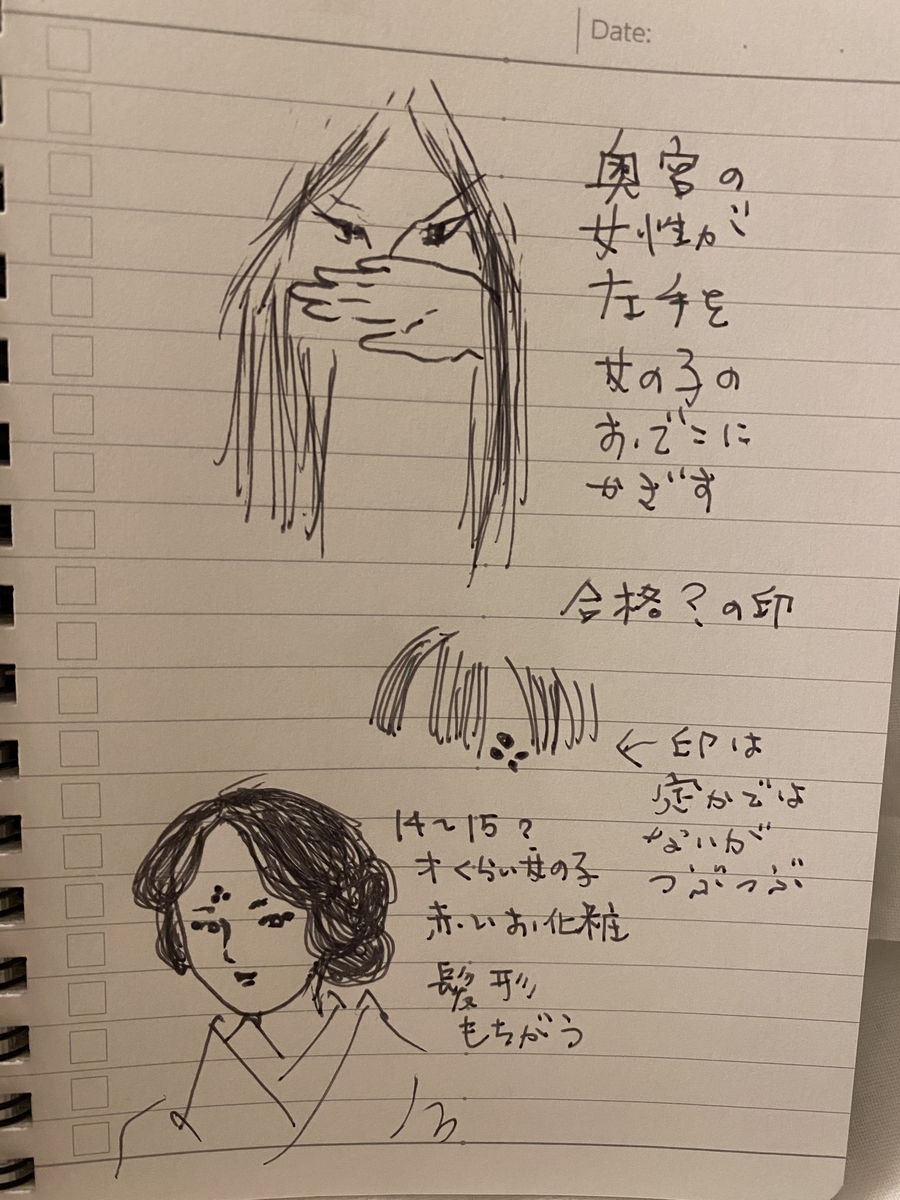 Date:
奥宮の
女性が
左手を
女の子の
おでこに
かざす
合格?の印
←印は
定かでは
ないが
つぶつぶ
14〜15?
才くらい女の子
赤いお化粧
髪形
もちがう